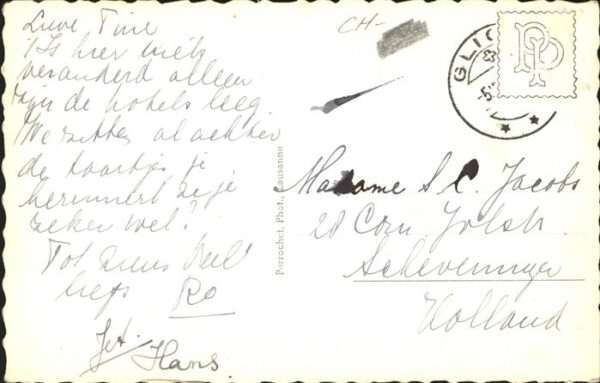 Lieve Tine
Is hier niets
veranderd alleen
zijn de hotels leeg.
We zitten al achter
de taartjes je
herinnert ze je
zeker wel!
Tot ziens Veel
liefs Ro
Jet.
Hans.
CH-
GLIO
PP
Perrochet, Phot., Lausanne
Madame S. C. Jacobs
28 Corn Jolstr.
Scheveningen
Holland